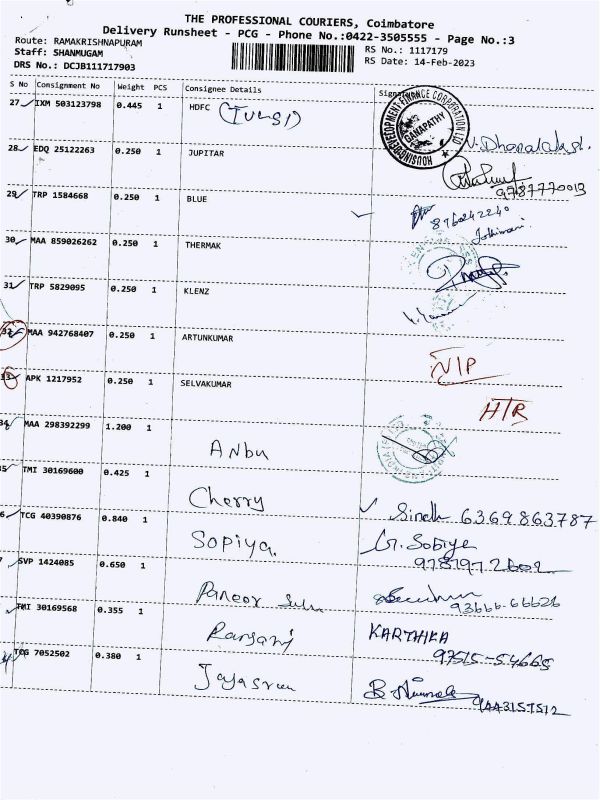 THE PROFESSIONAL COURIERS, Coimbatore
Delivery Runsheet - PCG - Phone No.:0422-3505555 - Page No.:3
Route: RAMAKRISHNAPURAM
RS No.: 1117179
Staff: SHANMUGAM
RS Date: 14-Feb-2023
DRS No.: DCJB111717903
S No Consignment No Weight PCS Consignee Details
27 IXM 503123798 0.445 1 HDFC (TULSI)
HOUSING DEVELOPMENT FINANCE CORPORATION LTD
GANAPATHY
28 EDQ 25122263 0.250 1 JUPITAR
9787770013
29 TRP 1584668 0.250 1 BLUE
8760242240
Jothimani
30 MAA 859026262 0.250 1 THERMAK
31 TRP 5829095 0.250 1 KLENZ
32 MAA 942768407 0.250 1 ARTUNKUMAR
N/P
33 APK 1217952 0.250 1 SELVAKUMAR
HTR
34 MAA 298392299 1.200 1 Anbu
35 TMI 30169600 0.425 1 Cherry
6369863787
6 TCG 40390876 0.840 1 Sopiya.
G. Sobiya
SVP 1424085 0.650 1
93666-66626
TMI 30169568 0.355 1 Ranjani
KARTHIKA
97515-54665
TCG 7052502 0.380 1 Jayasree
9443157512